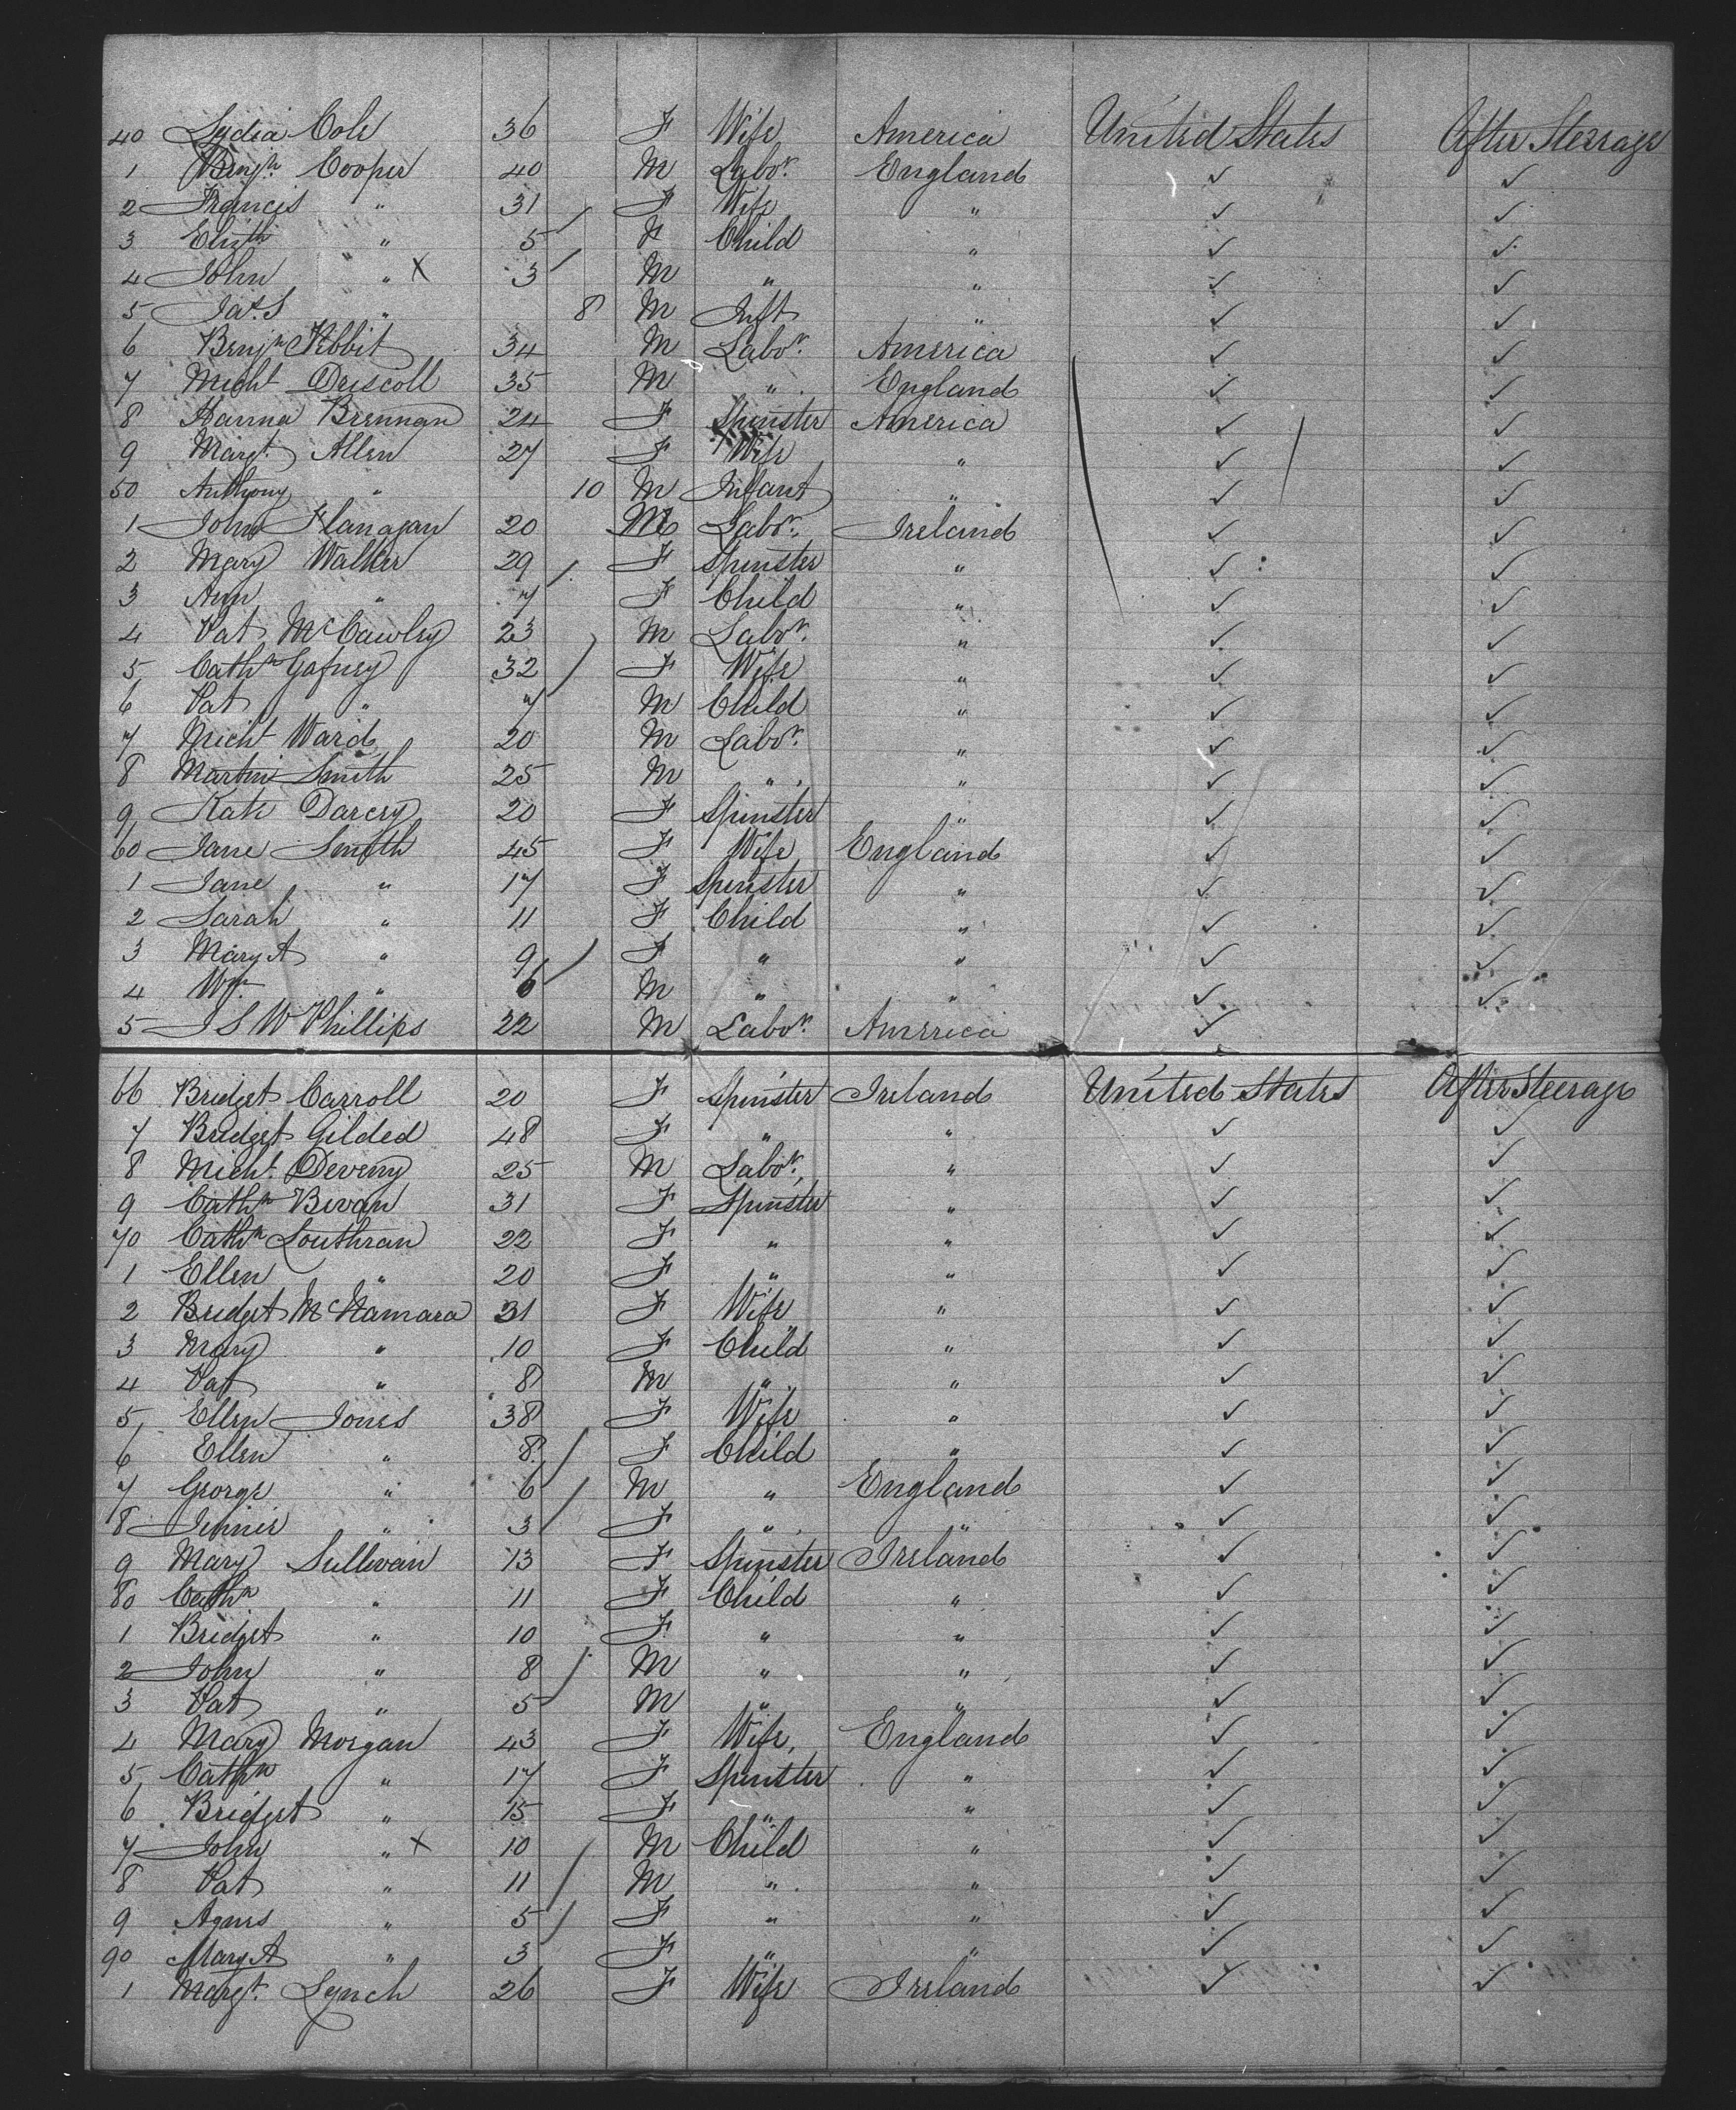 40 Lydia Cole 36 F Wife America United States After Steerage
1 Benjn. Cooper 40 M Labor. England ✓ ✓
2 Francis " 31 F Wife " ✓ ✓
3 Elizth " 5 F Child " ✓ ✓
4 John " X 3 M " " ✓ ✓
5 Jas. S " 8 M Inft " ✓ ✓
6 Benjn 34 M Labor. America ✓ ✓
7 Michl Driscoll 35 M " England ✓ ✓
8 Hanna Brennan 24 F Spinster America ✓ ✓
9 Margt. Allen 27 F Wife " ✓ ✓
50 Anthony " 10 M Infant " ✓ ✓
1 John Flanagan 20 M Labor. Ireland ✓ ✓
2 Mary Walker 29 F Spinster " ✓ ✓
3 Ann " 7 F Child " ✓ ✓
4 Pat McCawley 23 M Labor. " ✓ ✓
5 Cathn Gafney 32 F Wife " ✓ ✓
6 Pat " 7 M Child " ✓ ✓
7 Michl Ward 20 M Labor. " ✓ ✓
8 Martin Smith 25 M " " ✓ ✓
9 Kate Darcey 20 F Spinster " ✓ ✓
60 Jane Smith 45 F Wife England ✓ ✓
1 Jane " 17 F Spinster " ✓ ✓
2 Sarah " 11 F Child " ✓ ✓
3 Mary A " 9 F " " ✓ ✓
4 Wm. " 6 M " " ✓ ✓
5 J S W Phillips 22 M Labor. America ✓ ✓
66 Bridget Carroll 20 F Spinster Ireland United States After Steerage
7 Bridget Gilded 48 F " " ✓ ✓
8 Michl. Deveny 25 M Labor. " ✓ ✓
9 Cathn Bevan 31 F Spinster " ✓ ✓
70 Cathn Louthran 22 F " " ✓ ✓
1 Ellen " 20 F " " ✓ ✓
2 Bridget McNamara 31 F Wife " ✓ ✓
3 Mary " 10 F Child " ✓ ✓
4 Pat " 8 M " " ✓ ✓
5 Ellen Jones 38 F Wife " ✓ ✓
6 Ellen " 8 F Child " ✓ ✓
7 George " 6 M " England ✓ ✓
8 Jennie " 3 F " " ✓ ✓
9 Mary Sullivan 13 F Spinster Ireland ✓ ✓
80 Cathn " 11 F Child " ✓ ✓
1 Bridget " 10 F " " ✓ ✓
2 John " 8 M " " ✓ ✓
3 Pat " 5 M " " ✓ ✓
4 Mary Morgan 43 F Wife England ✓ ✓
5 Cathn " 17 F Spinster " ✓ ✓
6 Bridget " 15 F " " ✓ ✓
7 John " X 10 M Child " ✓ ✓
8 Pat " 11 M " " ✓ ✓
9 Agnes " 5 F " " ✓ ✓
90 Mary A " 3 F " " ✓ ✓
1 Margt. Lynch 26 F Wife Ireland ✓ ✓